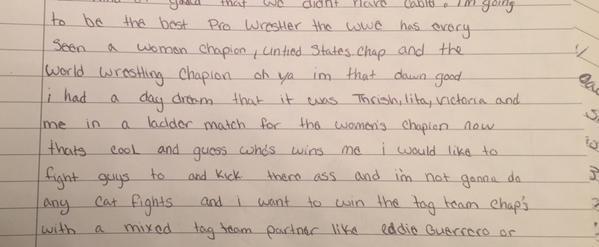 good that we didnt have cable. I'm going
to be the best Pro Wrestler the WWE has every
seen a women chapion, Untied States chap and the
World Wrestling Chapion oh ya im that dawn good
i had a day dream that it was Thrish, lita, victoria and
me in a ladder match for the women's chapion now
thats cool and guess who's wins me i would like to
fight guys to and kick there ass and i'm not gonna do
any cat fights and i want to win the tag team chap's
with a mixed tag team partner like eddie Guerrero or